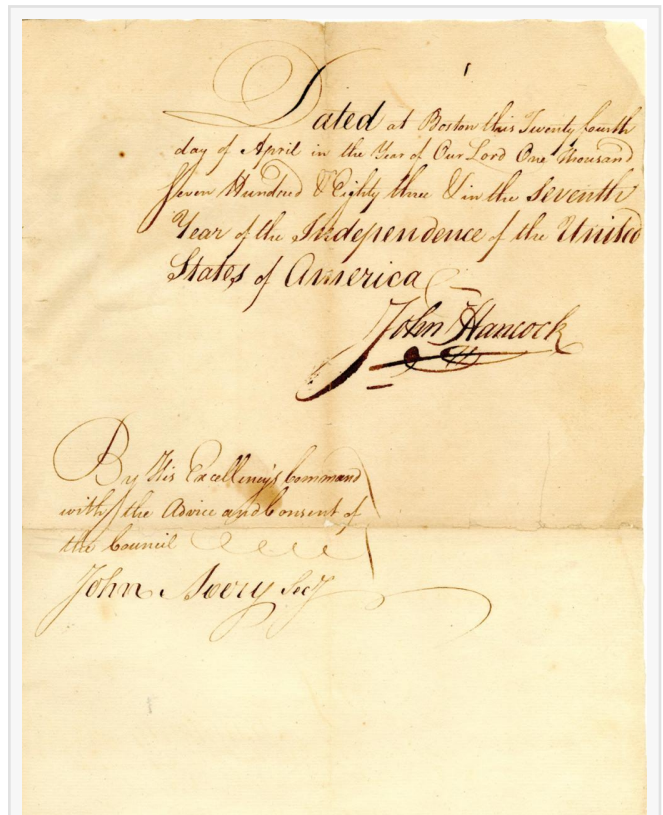 Dated at Boston this Twenty fourth
day of April in the Year of Our Lord One thousand
Seven Hundred & Eighty three & in the Seventh
Year of the Independence of the United
States of America
John Hancock
By His Excellency's Command
with the Advice and Consent of
the Council
John Avery Secy